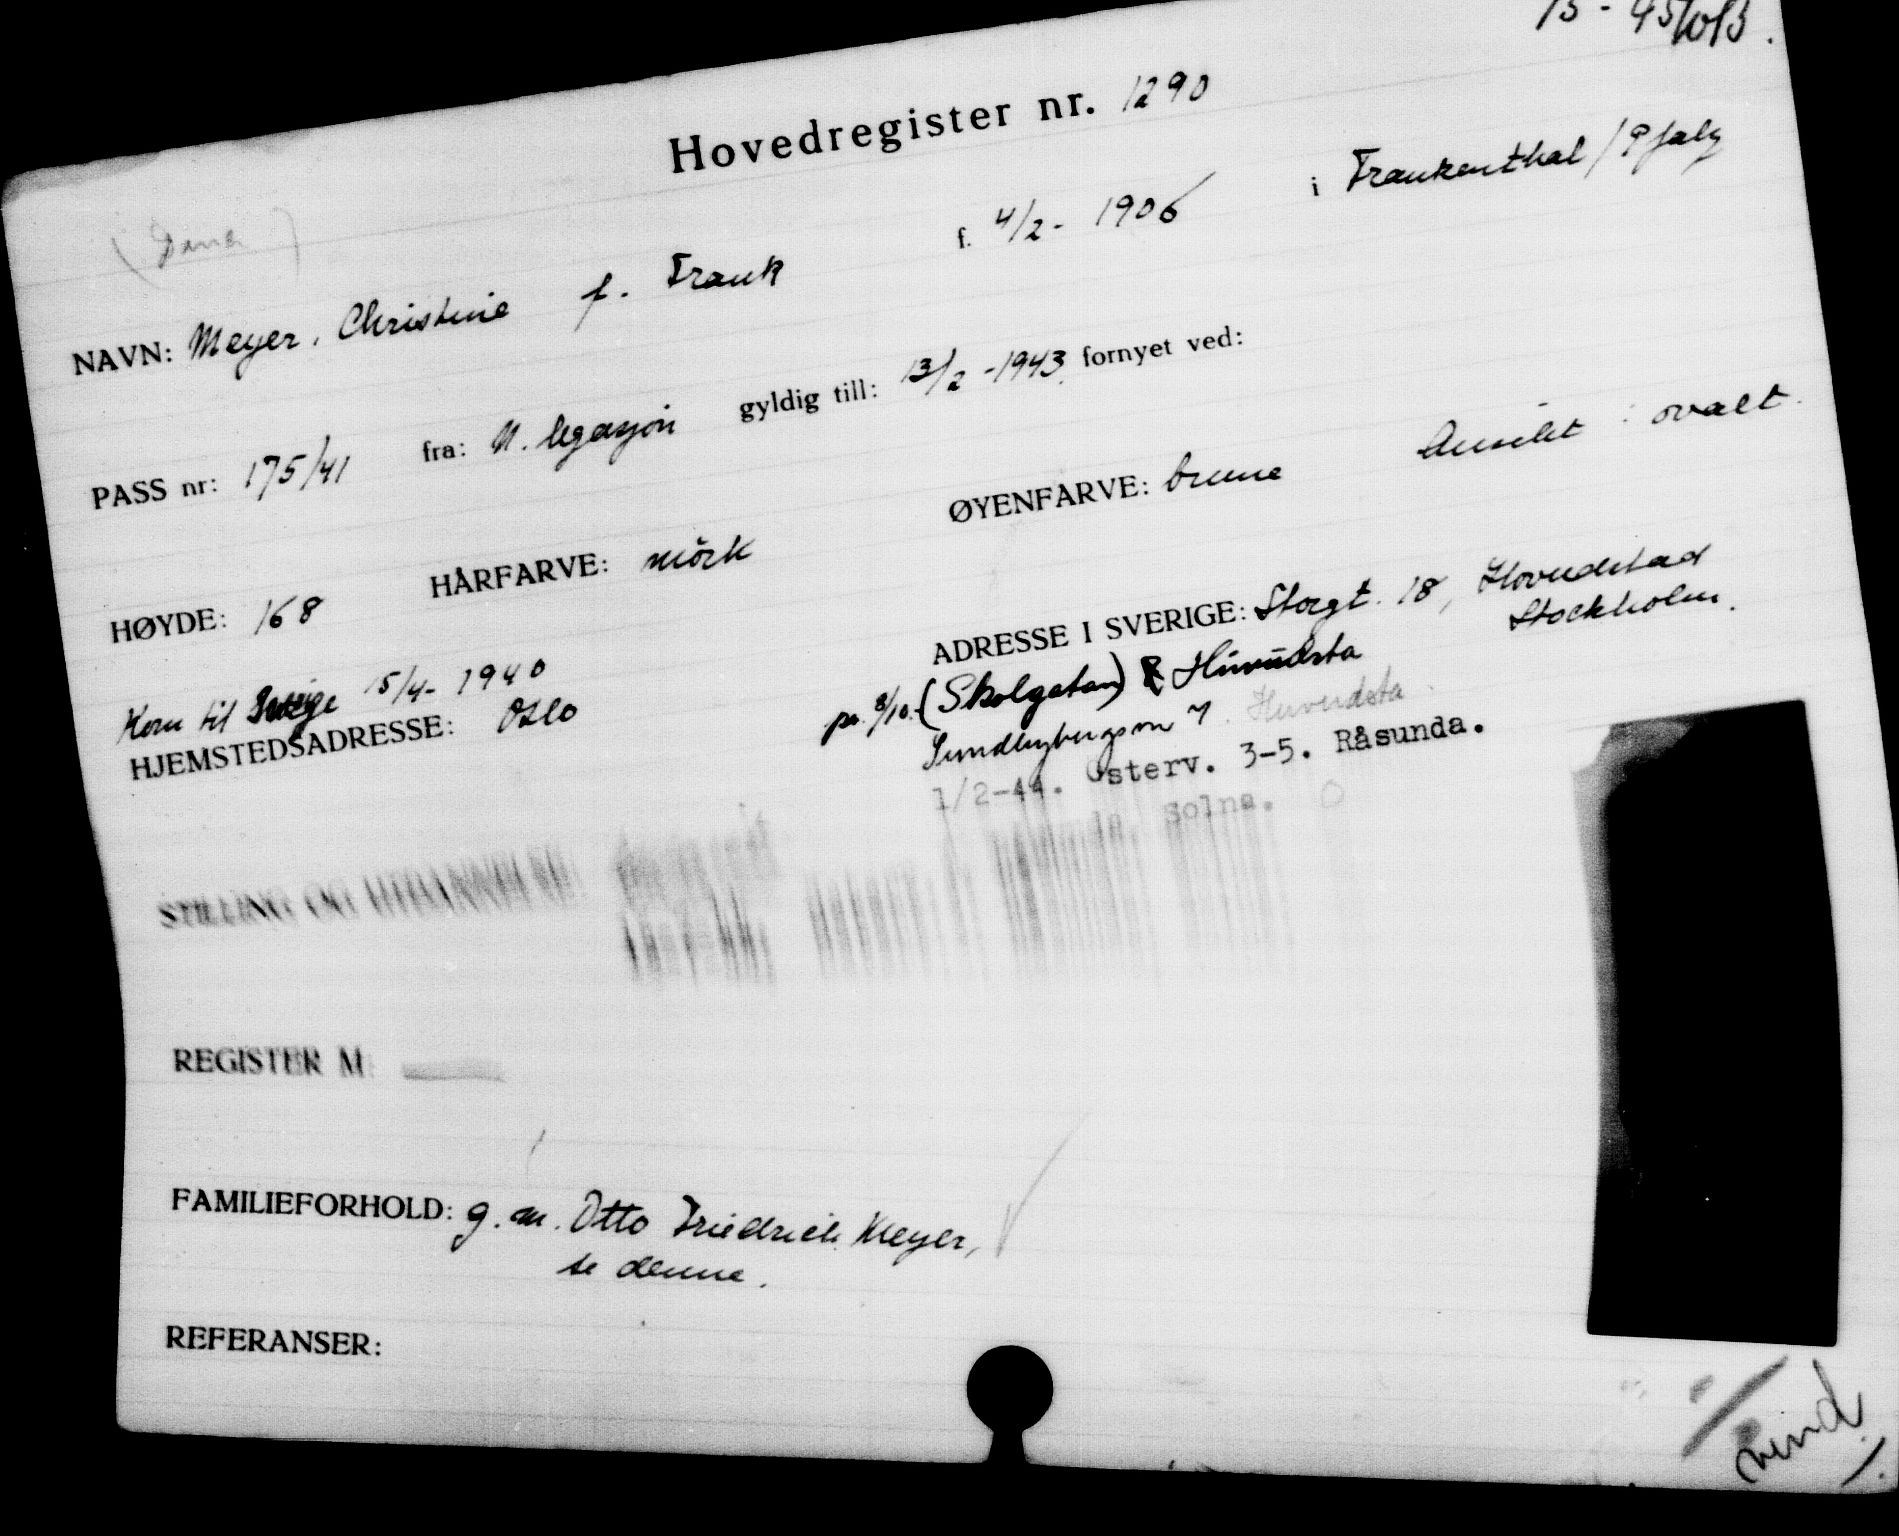 Hovedregister nr. 1290
NAVN: Meyer, Christine f. Frank f. 4/2 - 1906 i Frankenthal / Pfalz
PASS nr: 175/41 fra: N. legasjon gyldig till: 13/2 - 1943. fornyet ved:
HØYDE: 168 HÅRFARVE: mörk ØYENFARVE: brune Ansikt : ovalt.
Kom til Sverige 15/4 - 1940
HJEMSTEDSADRESSE: Oslo
ADRESSE I SVERIGE: Storgt. 18, Hovudstad
Stockholm.
pr. 8/10. (Skolgatan) Huvudsta
Sundbybergsv 7. Huvudsta.
1/2-44. Österv. 3-5. Råsunda.
Solna.
STILLING OG UTDANNELSE:
REGISTER M
FAMILIEFORHOLD: g. m. Otto Friedrich Meyer,
se denne.
REFERANSER:
vend